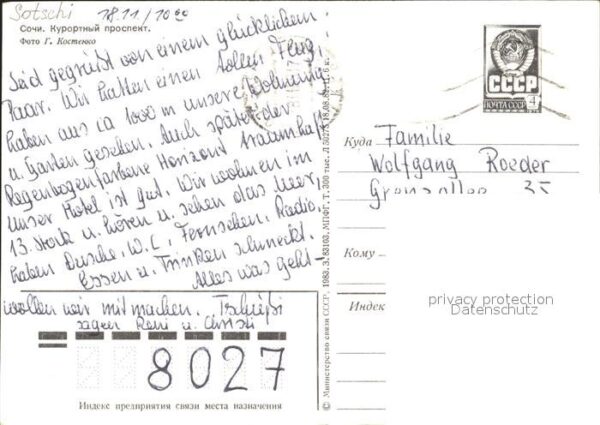 Sotschi 18.11./10⁰⁰
Сочи. Курортный проспект.
Фото Г. Костенко
Seid gegrüßt von einem glücklichen
Paar. Wir hatten einen tollen Flug,
haben aus ca 1000 m unsere Wohnung
u. Garten gesehen. Auch später der
Regenbogenfarbene Horizont traumhaft
unser Hotel ist gut. Wir wohnen im
13. Stock u. hören u. sehen das Meer,
haben Dusche, W.C., Fernsehen, Radio.
Essen u. Trinken schmeckt.
Alles was geht-
wollen wir mit machen. Tschüßi
sagen René u. Christi
8027
Индекс предприятия связи места назначения
© Министерство связи СССР, 1983. З. 83103. МПФГ. Т. 300 тыс. 18.08.83. Ц. 6 к.
СССР
ПОЧТА СССР 4
Куда Familie
Wolfgang Roeder
Кому
Индекс
privacy protection
Datenschutz